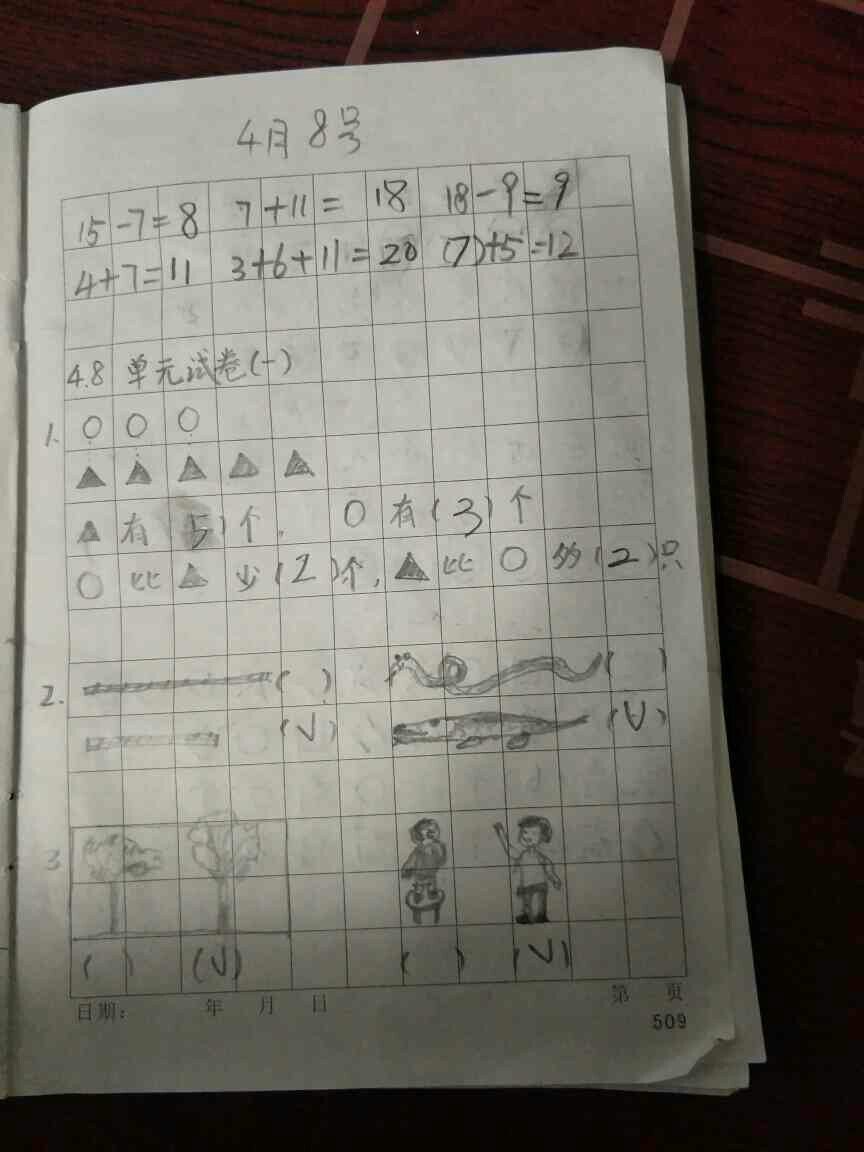 4月8号
15-7=8 7+11=18 18-9=9
4+7=11 3+6+11=20 (7)+5=12
4.8 单元试卷(一)
1. ○ ○ ○
▲ ▲ ▲ ▲ ▲
▲有(5)个. ○有(3)个
○比▲少(2)个,▲比○多(2)只
2. ( ) ( )
(√) (√)
3
( ) (√) ( ) (√)
日期: 年 月 日
第 页
509